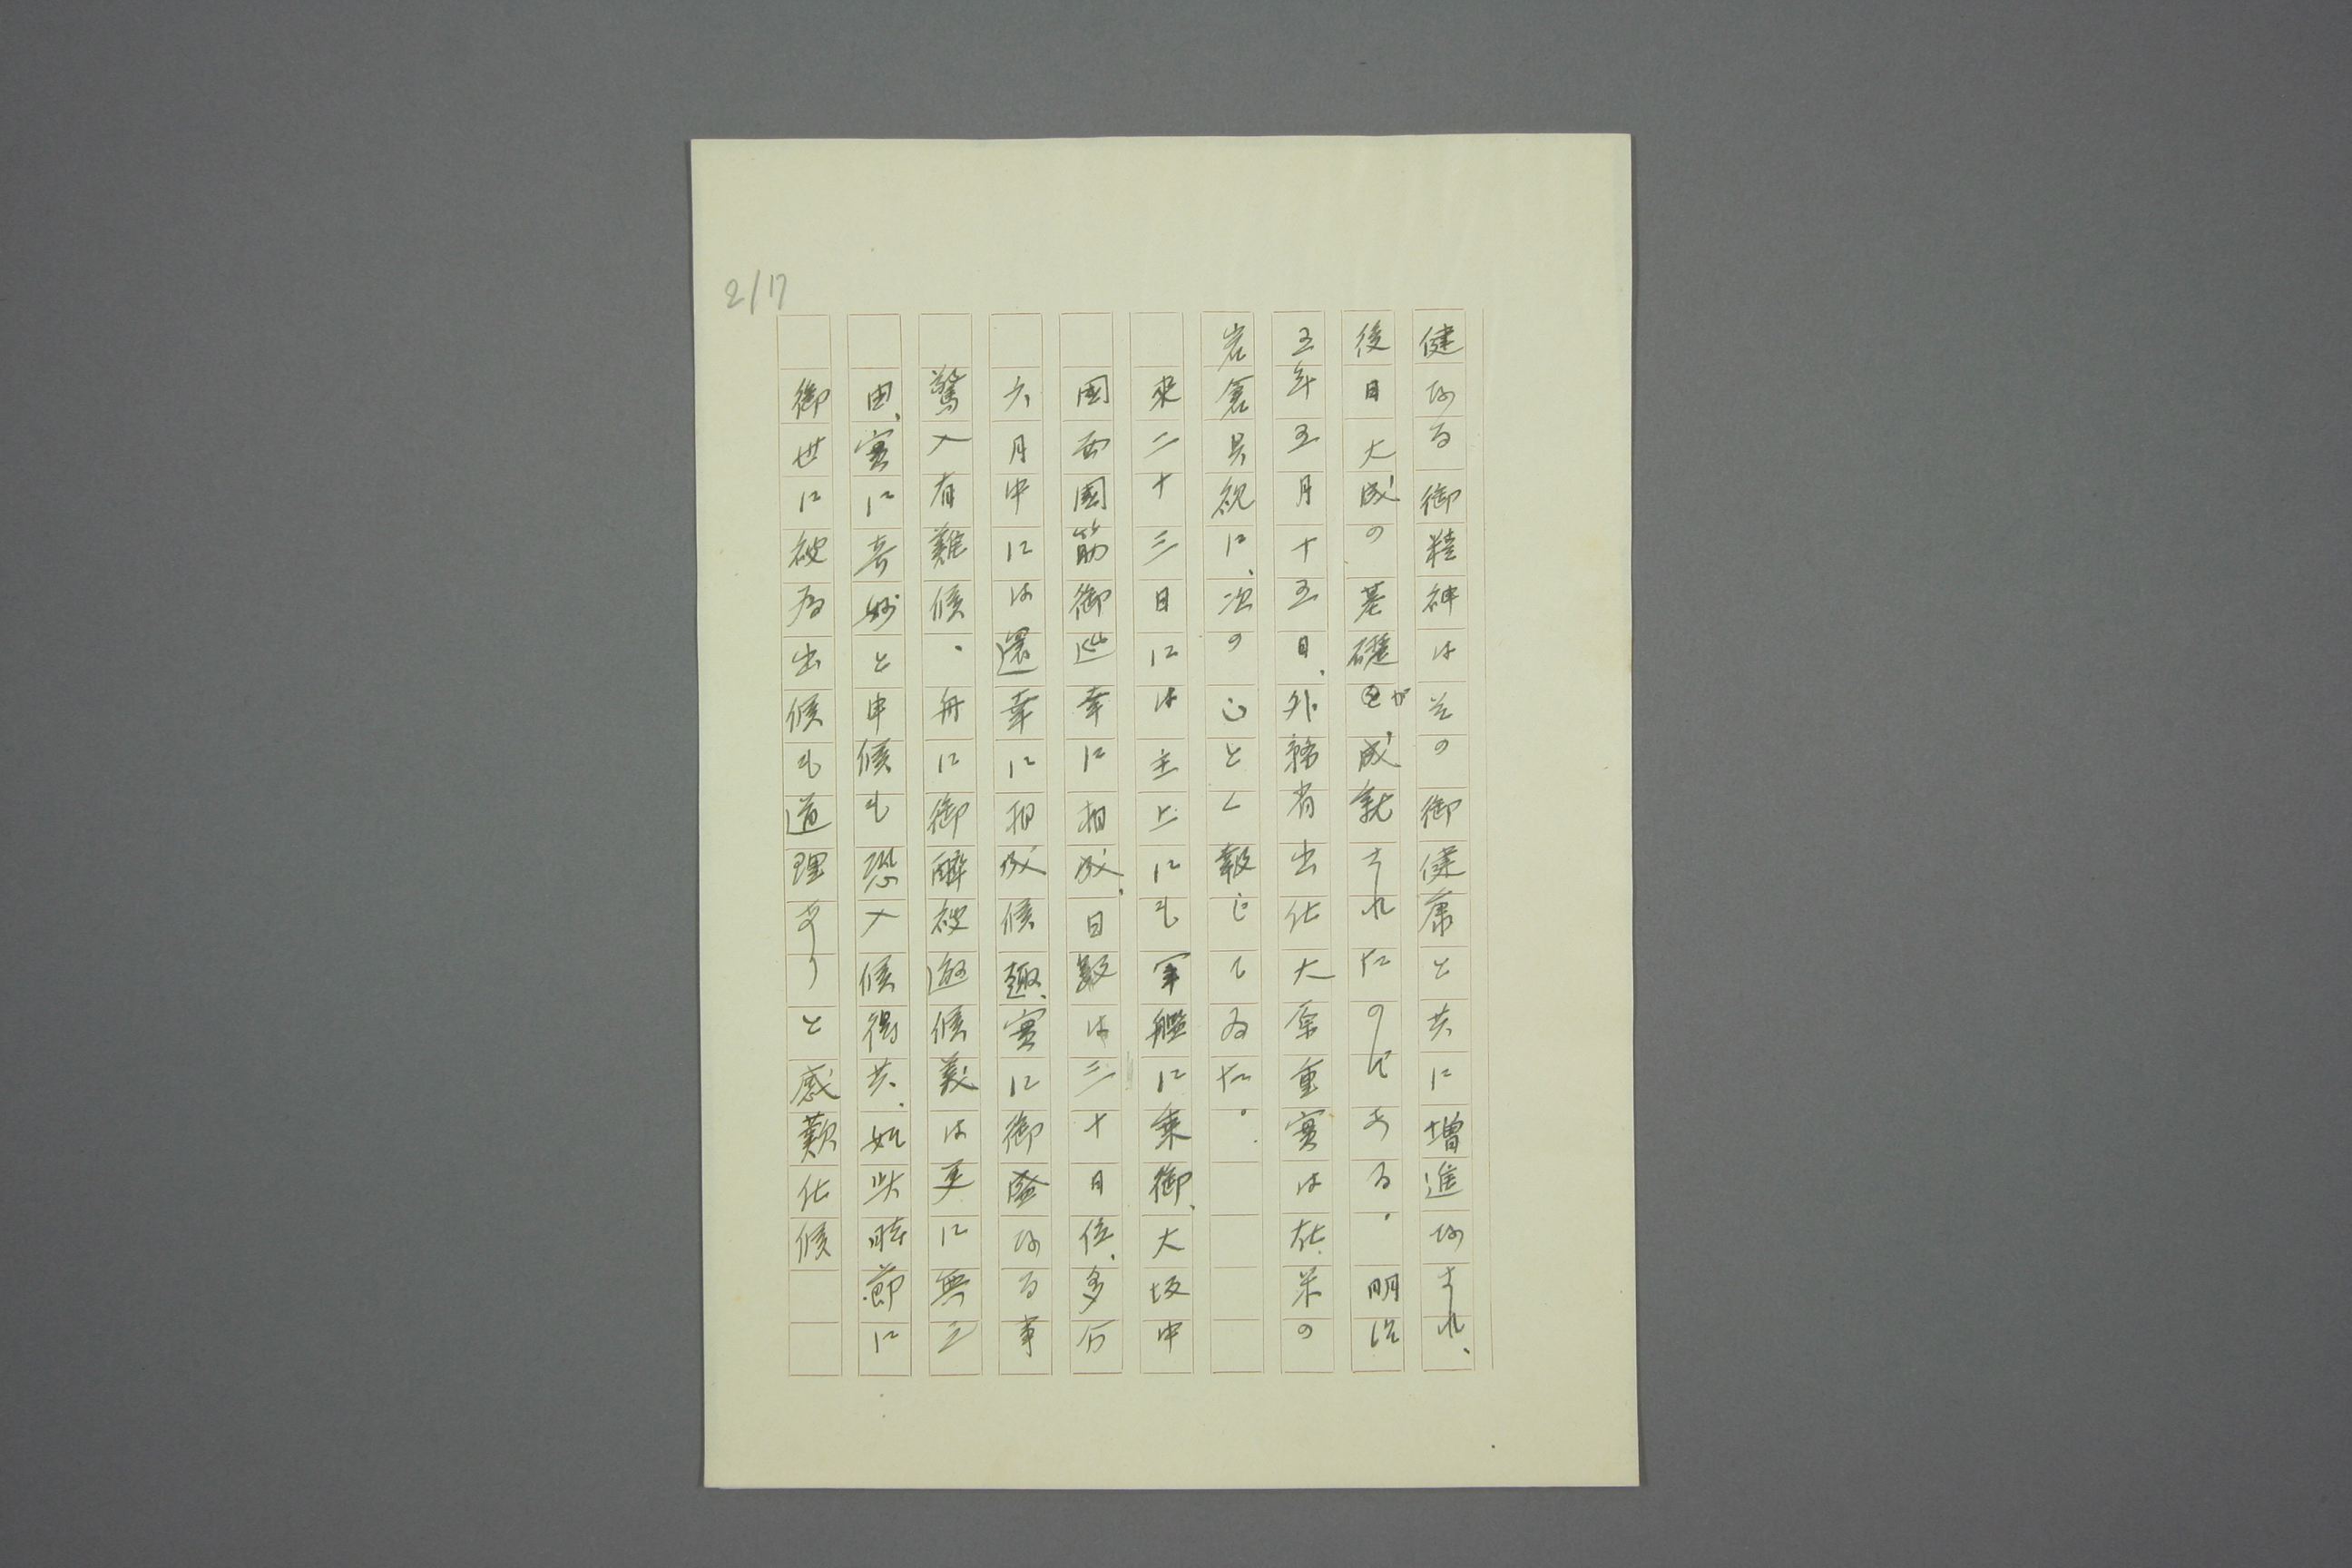 2/17
健なる御精神は益の御健康と共に増進なされ、
後日大成の基礎が成就されたのである。明治
五年五月十五日、外務省出仕大原重實は在米の
岩倉具視に、次のごとく報じてゐた。
來二十三日には主上にも軍艦に乘御、大坂中
国西國筋御巡幸に相成、日数は三十日位、多分
六月中には還幸に相成候趣、實に御盛なる事
驚入有難候。舟に御酔被遊候義は更に無之
由、實に奇妙と申候も恐入候得共、如此時節に
御世に被爲出候も道理ありと感歎仕候